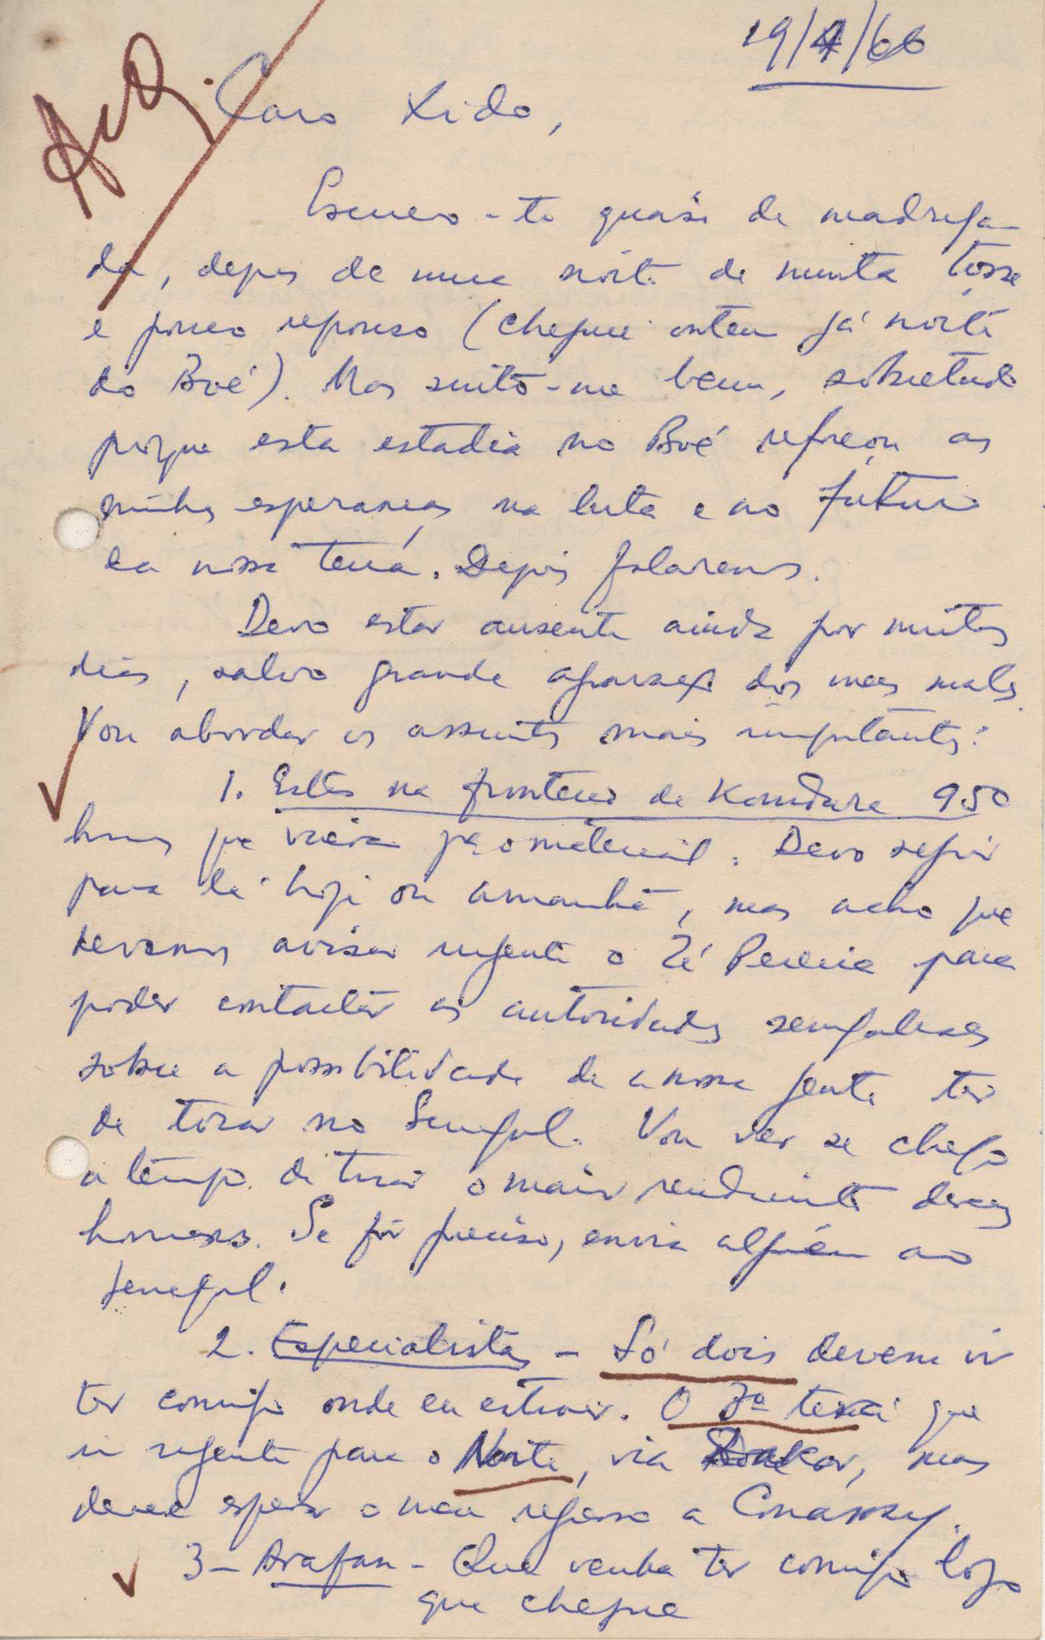 19/4/66
Arq.
Caro Xido,
Escrevo-te quasi de madruga-
da, depois de uma noite de muita tosse
e pouco repouso (cheguei ontem já noite
do Boé). Mas sinto-me bem, sobretudo
porque esta estadia no Boé reforçou as
minhas esperanças na luta e no futuro
da nossa terra. Depois falaremos.
Devo estar ausente ainda por muitos
dias, salvo grande dos meus males.
Vou abordar os assuntos mais importantes:
1. Estão na fronteira de Koundara 950
homens que vieram pa o material. Devo seguir
para lá hoje ou amanhã, mas acho que
devemos avisar urgente o Zé Pereira para
poder contactar as autoridades senegalesas
sobre a possibilidade de a nossa gente ter
de tocar no Senegal. Vou ver se chego
a tempo de tirar o maior rendimento desses
homens. Se fôr preciso, envia alguém ao
Senegal.
2. Especialistas - Só dois devem vir
ter comigo onde eu estiver. O 3º terá que
ir urgente para o Norte, via Dakar, mas
deve esperar o meu regresso a Conakry.
3 - Arafan - Que venha ter comigo logo
que chegue